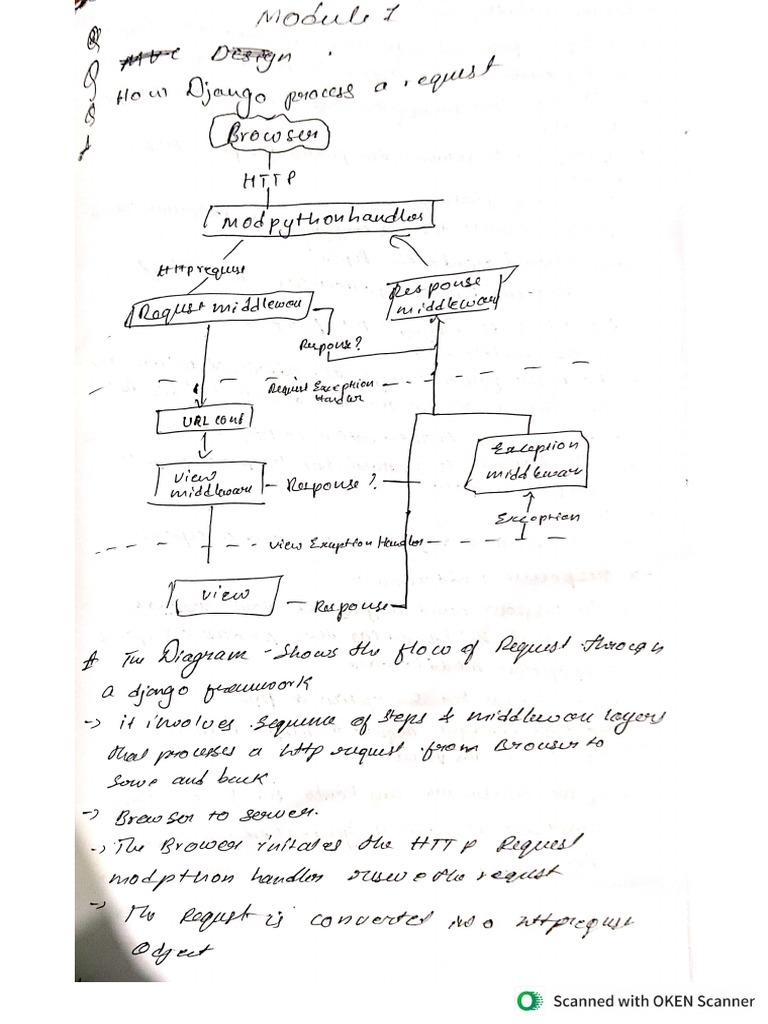 Module 1
MVC Design
How Django process a request
Browser
HTTP
modpythonhandler
HHp request
Request middlewar
Response
middleware
Response?
Request Exception
Handler
URL conf
View
middleware
Response ?
Exception
middlewar
Exception
View Exception Handler
view
Response
The Diagram - shows the flow of Request through
a django framework
-> it involves sequence of steps & middlewar layers
that processes a http request from Browser to
and back.
-> Browser to server.
-> The Browser initates the HTTP Request
modpthon handler the request
-> The Request is converted a httprequest
Object
Scanned with OKEN Scanner